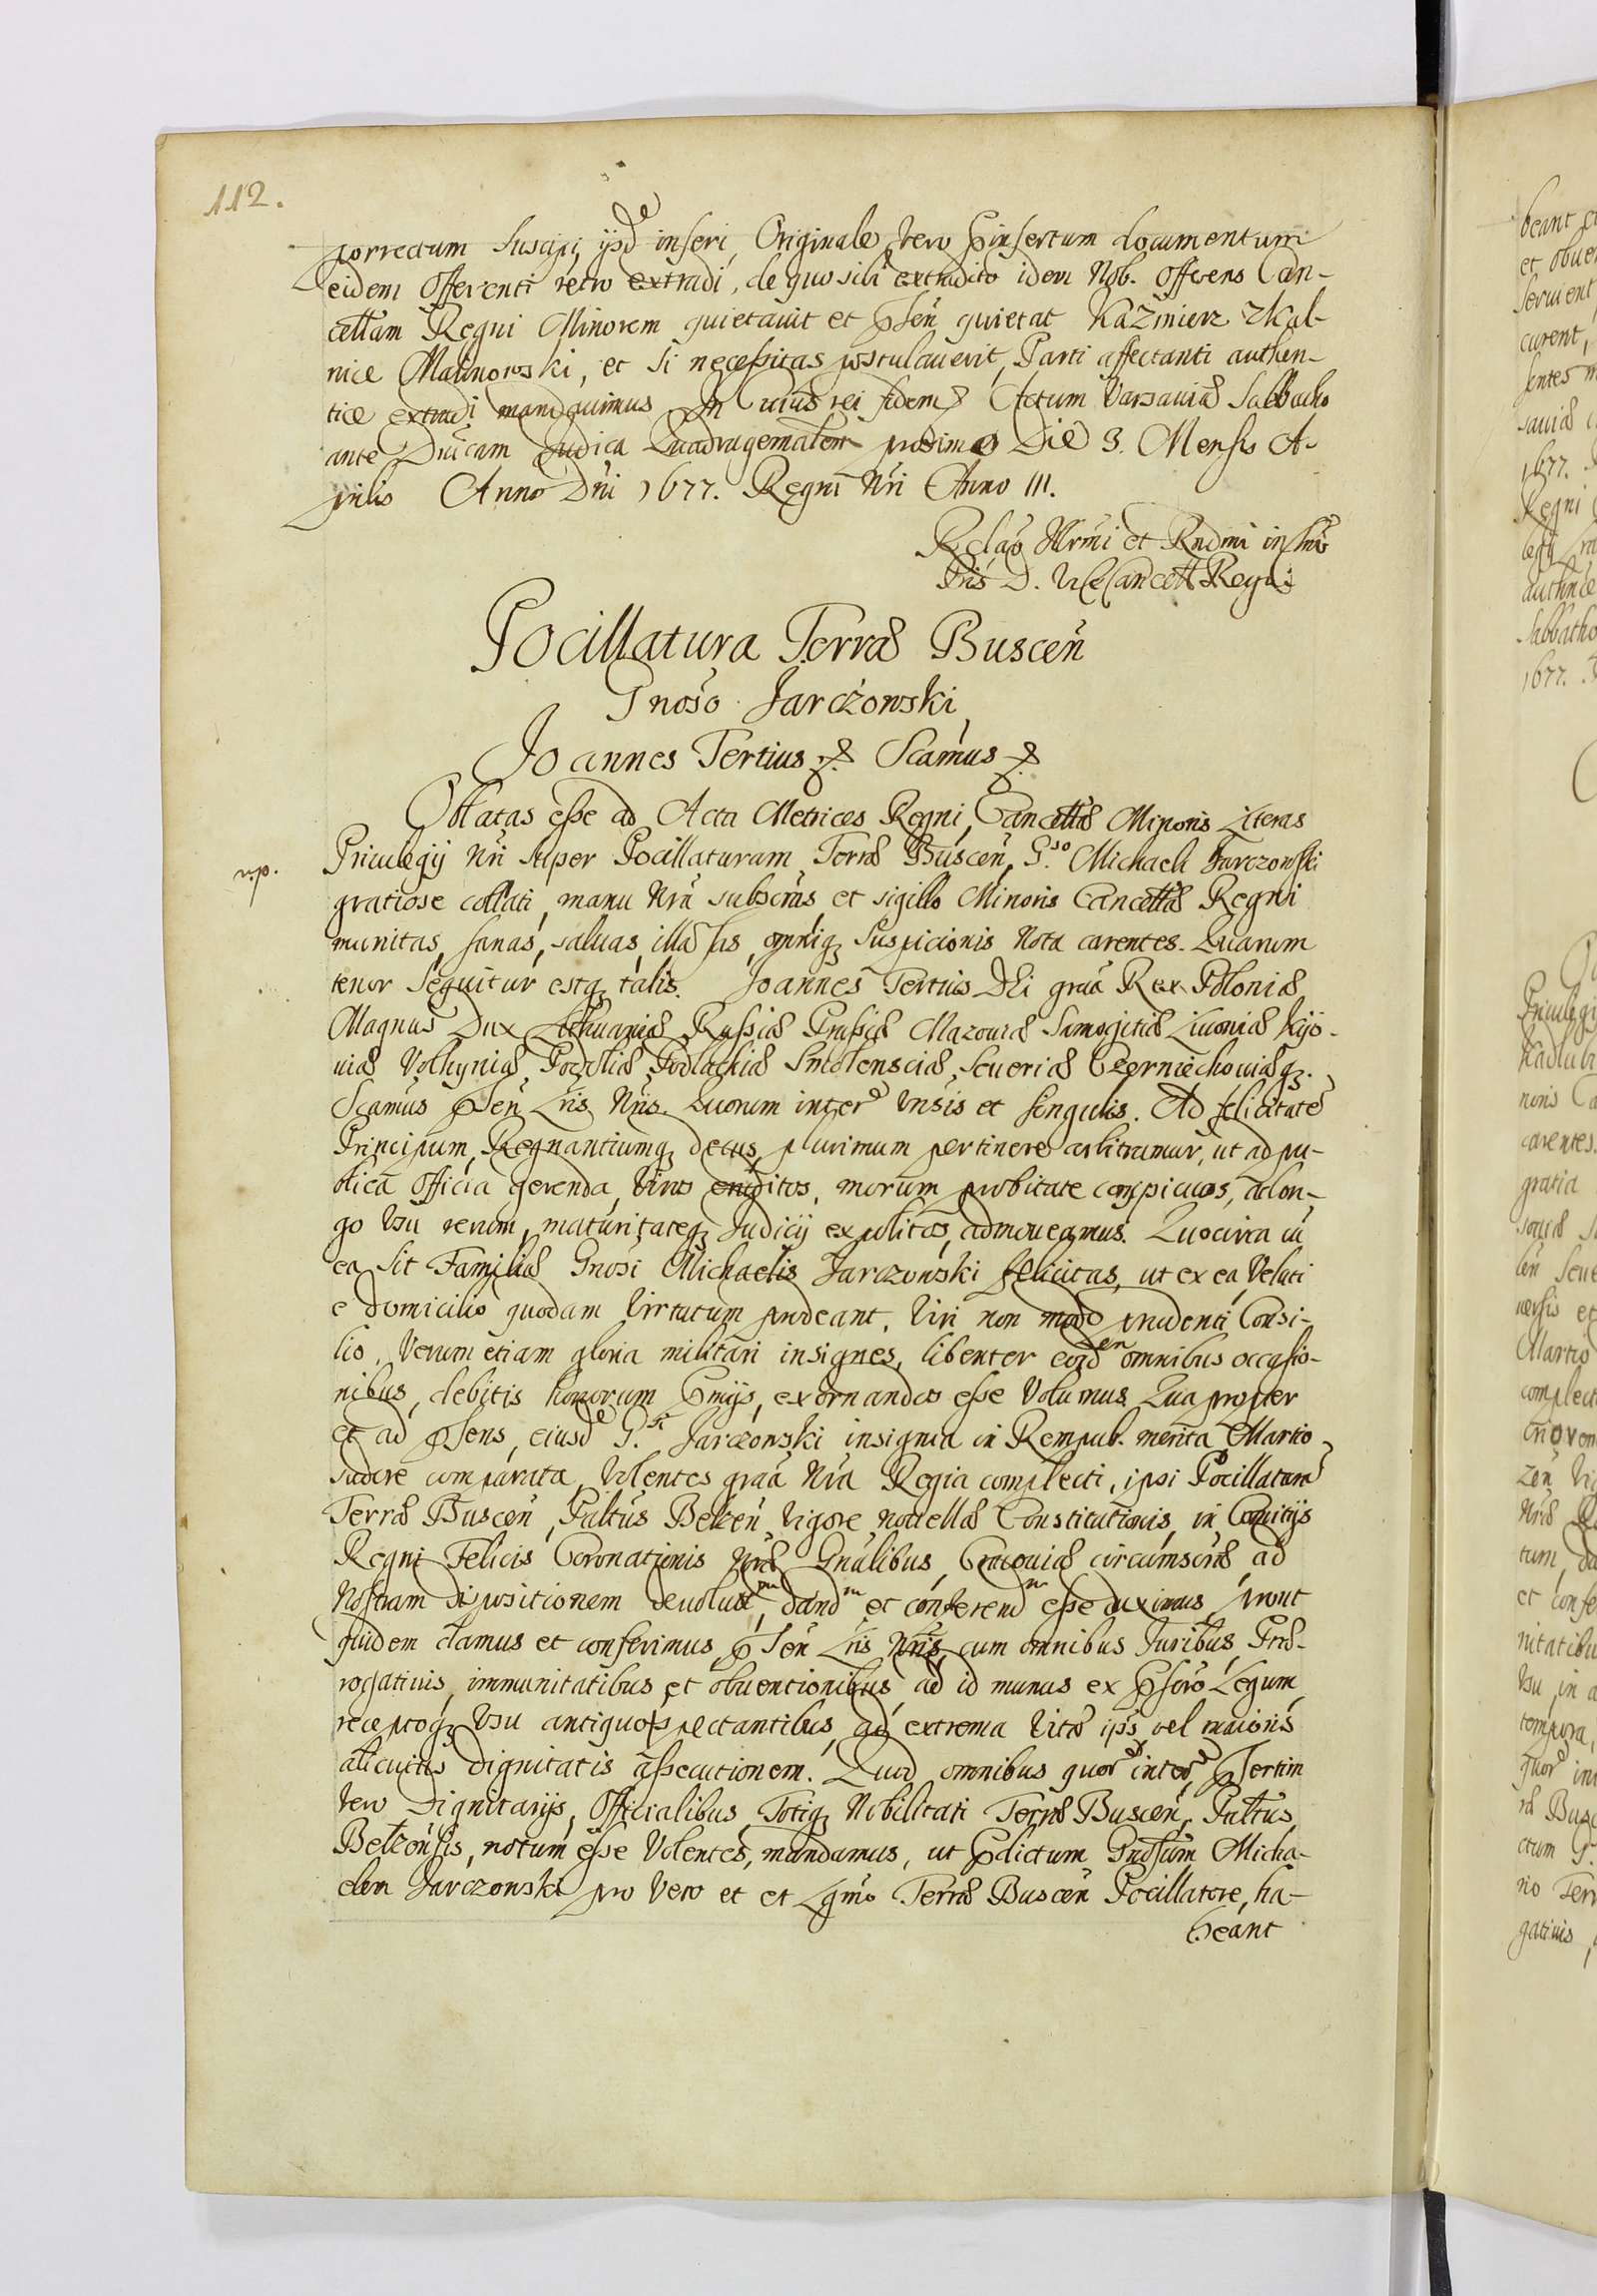 112.
porrectum suscipi, ijsde inseri, Originale vero p̃insertum documentum
eidem Offerenti retro extradi, de quo sibi extradito idem Nob. Offerens Can-
cellam Regni Minorem quietavit et p̃sen quietat Kaźmierz
Malinowski, et si necessitas postulaverit, Parti affectanti authen-
tice extradi mandavimus In cuius rei fidem Actum Varsaviæ Sabbatho
ante Dnicam Judica Quadragesimalem proximo Die 3. Mensis A-
prilis Anno Dni 1677. Regni Nri Anno III.
Relao Illrmi et Rndmi in
Pris D. ViceCancell Regni
Pocillatura Terræ Buscen
Gnoso Jarczowski
Joannes Tertius Scamus
Oblatas esse ad Acta Metrices Regni, Cancellæ Minoris Literas
Privilegij Nri super Pocillaturam Terræ Buscen, G.so Michaeli Jarczowski
gratiose collati, manu Nra subscras et sigillo Minoris Cancellæ Regni
munitas, sanas, salvas, illæsas, omniq suspicionis nota carentes. Quarum
tenor sequitur estq talis. Joannes Tertius Dei graa Rex Poloniæ
Magnus Dux Lithuaniæ Russiæ Prussiæ Mazoviæ Samogitiæ Livoniæ Kijo-
viæ Volhyniæ, Podoliæ Podlachiæ Smolensciæ, Severiæ Czerniechoviæq.
Scamus p̃sen Lris Nris. Quorum intere Vnsis et singulis. Ad felicitate
Principum, Regnantiumq decus, plurimum pertinere arbitramur, ut ad pu-
blica Officia gerenda, Viros eruditos, morum probitate conspicuos, ac lon-
go Vsu rerum, maturitateq Judicij expolitos, admoveamus. Quocirca cu
ea sit Familiæ Gnosi Michaelis Jarczowski felicitas, ut ex ea, Veluti
e domicilio quodam Virtutum prodeant, Viri non modo prudenti Consi-
lio, Verum etiam gloria militari insignes, libenter eosdem omnibus occasio-
nibus, debitis honorum p̃mijs, exornandos esse Volumus. Qua propter
et ad p̃sens, eiusde G.si Jarczowski insignia in Rempub. merita Martio
sudore comparata, Volentes graa Nra Regia complecti, ipsi Pocillatura
Terræ Buscen, Paltus Belzen Vigore novellæ Constitutionis, in Comitijs
Regni Felicis Coronationis Nræ Gnalibus, Cracoviæ circumscræ, ad
Nostram dispositionem devoluta, dand et conferend esse duximus, prout
quidem damus et conferimus, p̃sen Lris Nris, cum omnibus Juribus, Præ-
rogativis, immunitatibus et obventionibus ad id munus ex p̃scro Legum
receptoq Vsu antiquo spectantibus, ad extrema Vitæ ips, vel maioris
alicuius dignitatis assecutionem. Quod omnibus quor intere, p̃sertim
vero Dignitarijs, Officialibus, Totiq Nobilitati Terræ Buscen, Paltus
Belzensis, notum esse Volentes, mandamus, ut p̃dictum Gnosum Micha-
elem Jarczowski pro Vero et et Lgmo Terræ Buscen Pocillatore, ha-
beant